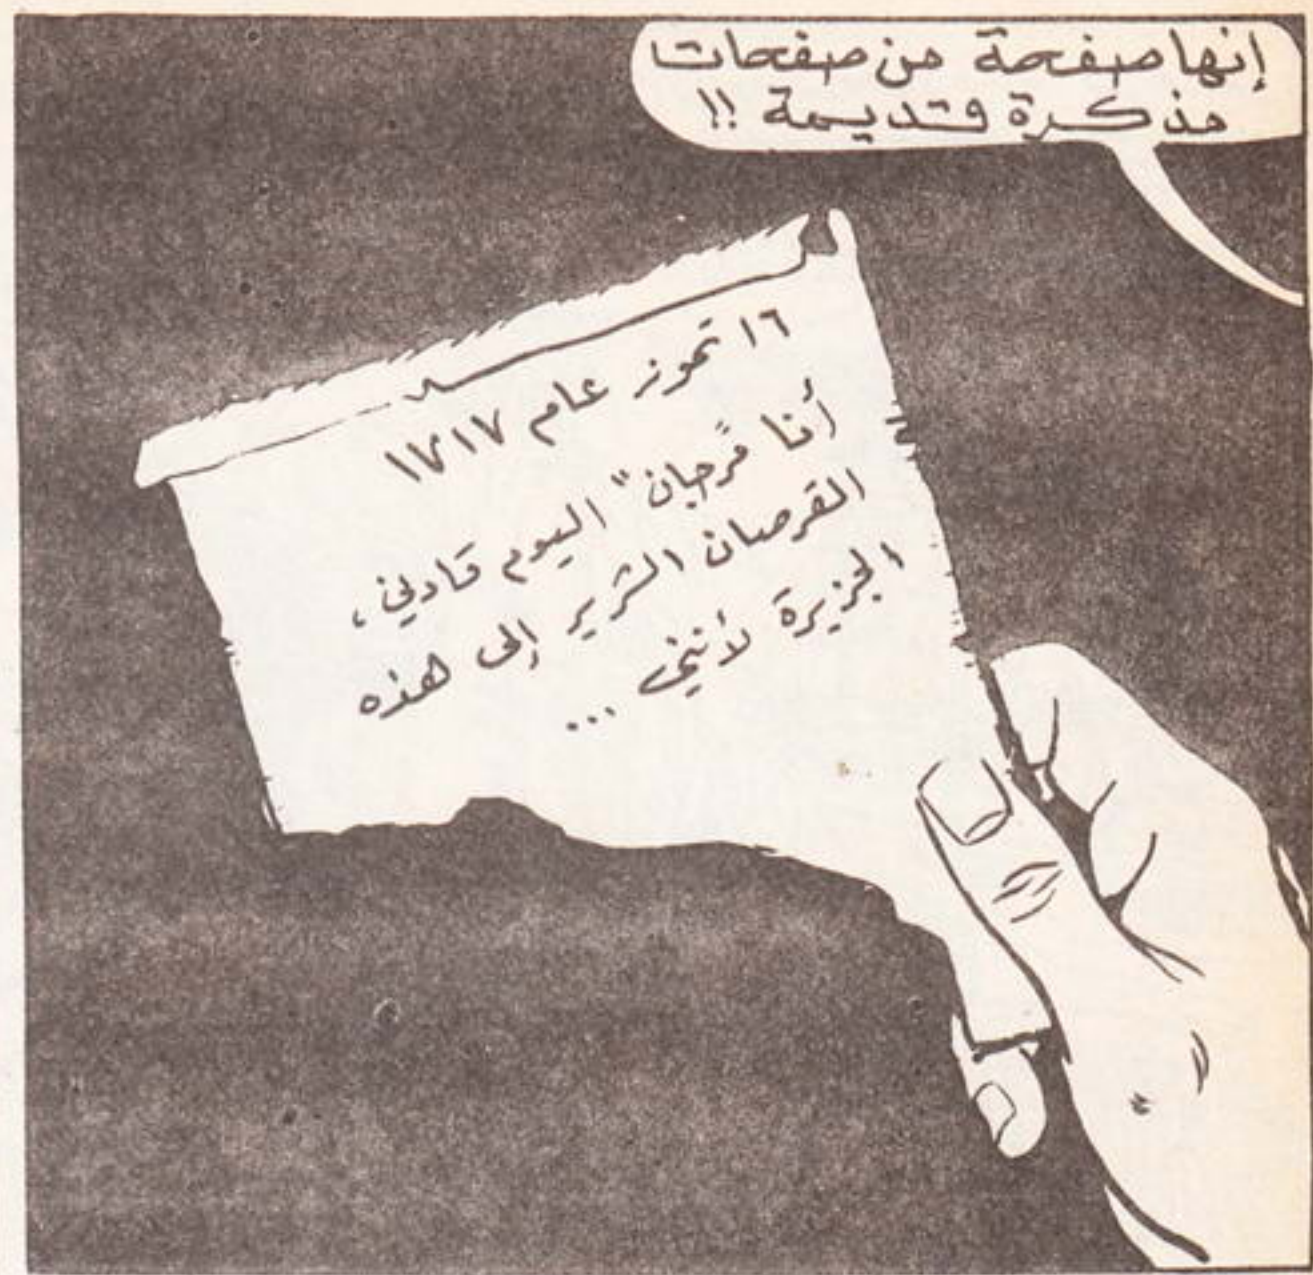 إنها صفحة من صفحات
مذكرة قديمة !!
١٦ تموز عام ١٧١٧
أنا "مرجان" اليوم قادني ،
القرصان الشرير إلى هذه
الجزيرة لأنني ...